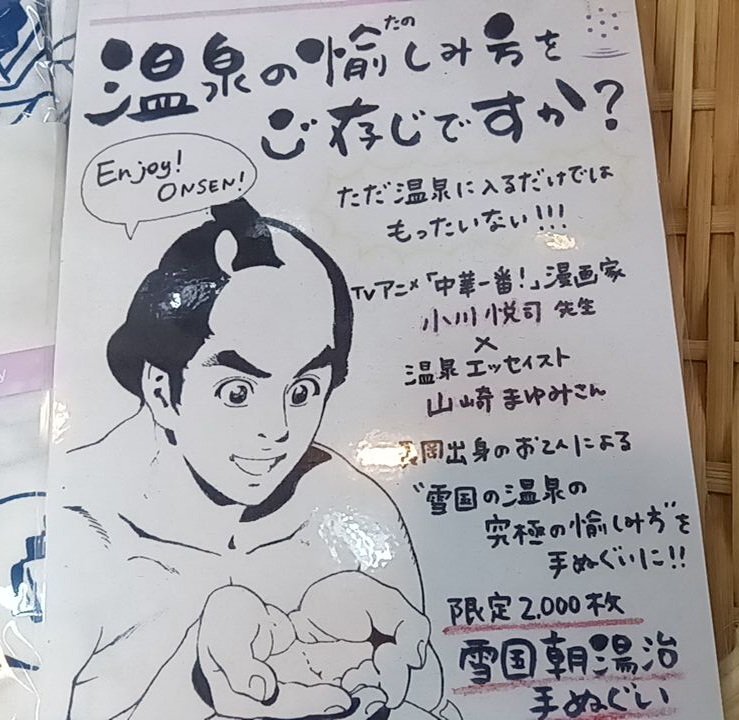 温泉の愉しみ方を
たの
ご存じですか?
Enjoy!
ONSEN!
ただ温泉に入るだけでは
もったいない!!!
TVアニメ「中華一番!」漫画家
小川悦司 先生
×
温泉エッセイスト
山崎まゆみさん
岡出身のお2人による
"雪国の温泉の
究極の愉しみ方"を
手ぬぐいに!!
限定2,000枚
雪国朝湯治
手ぬぐい